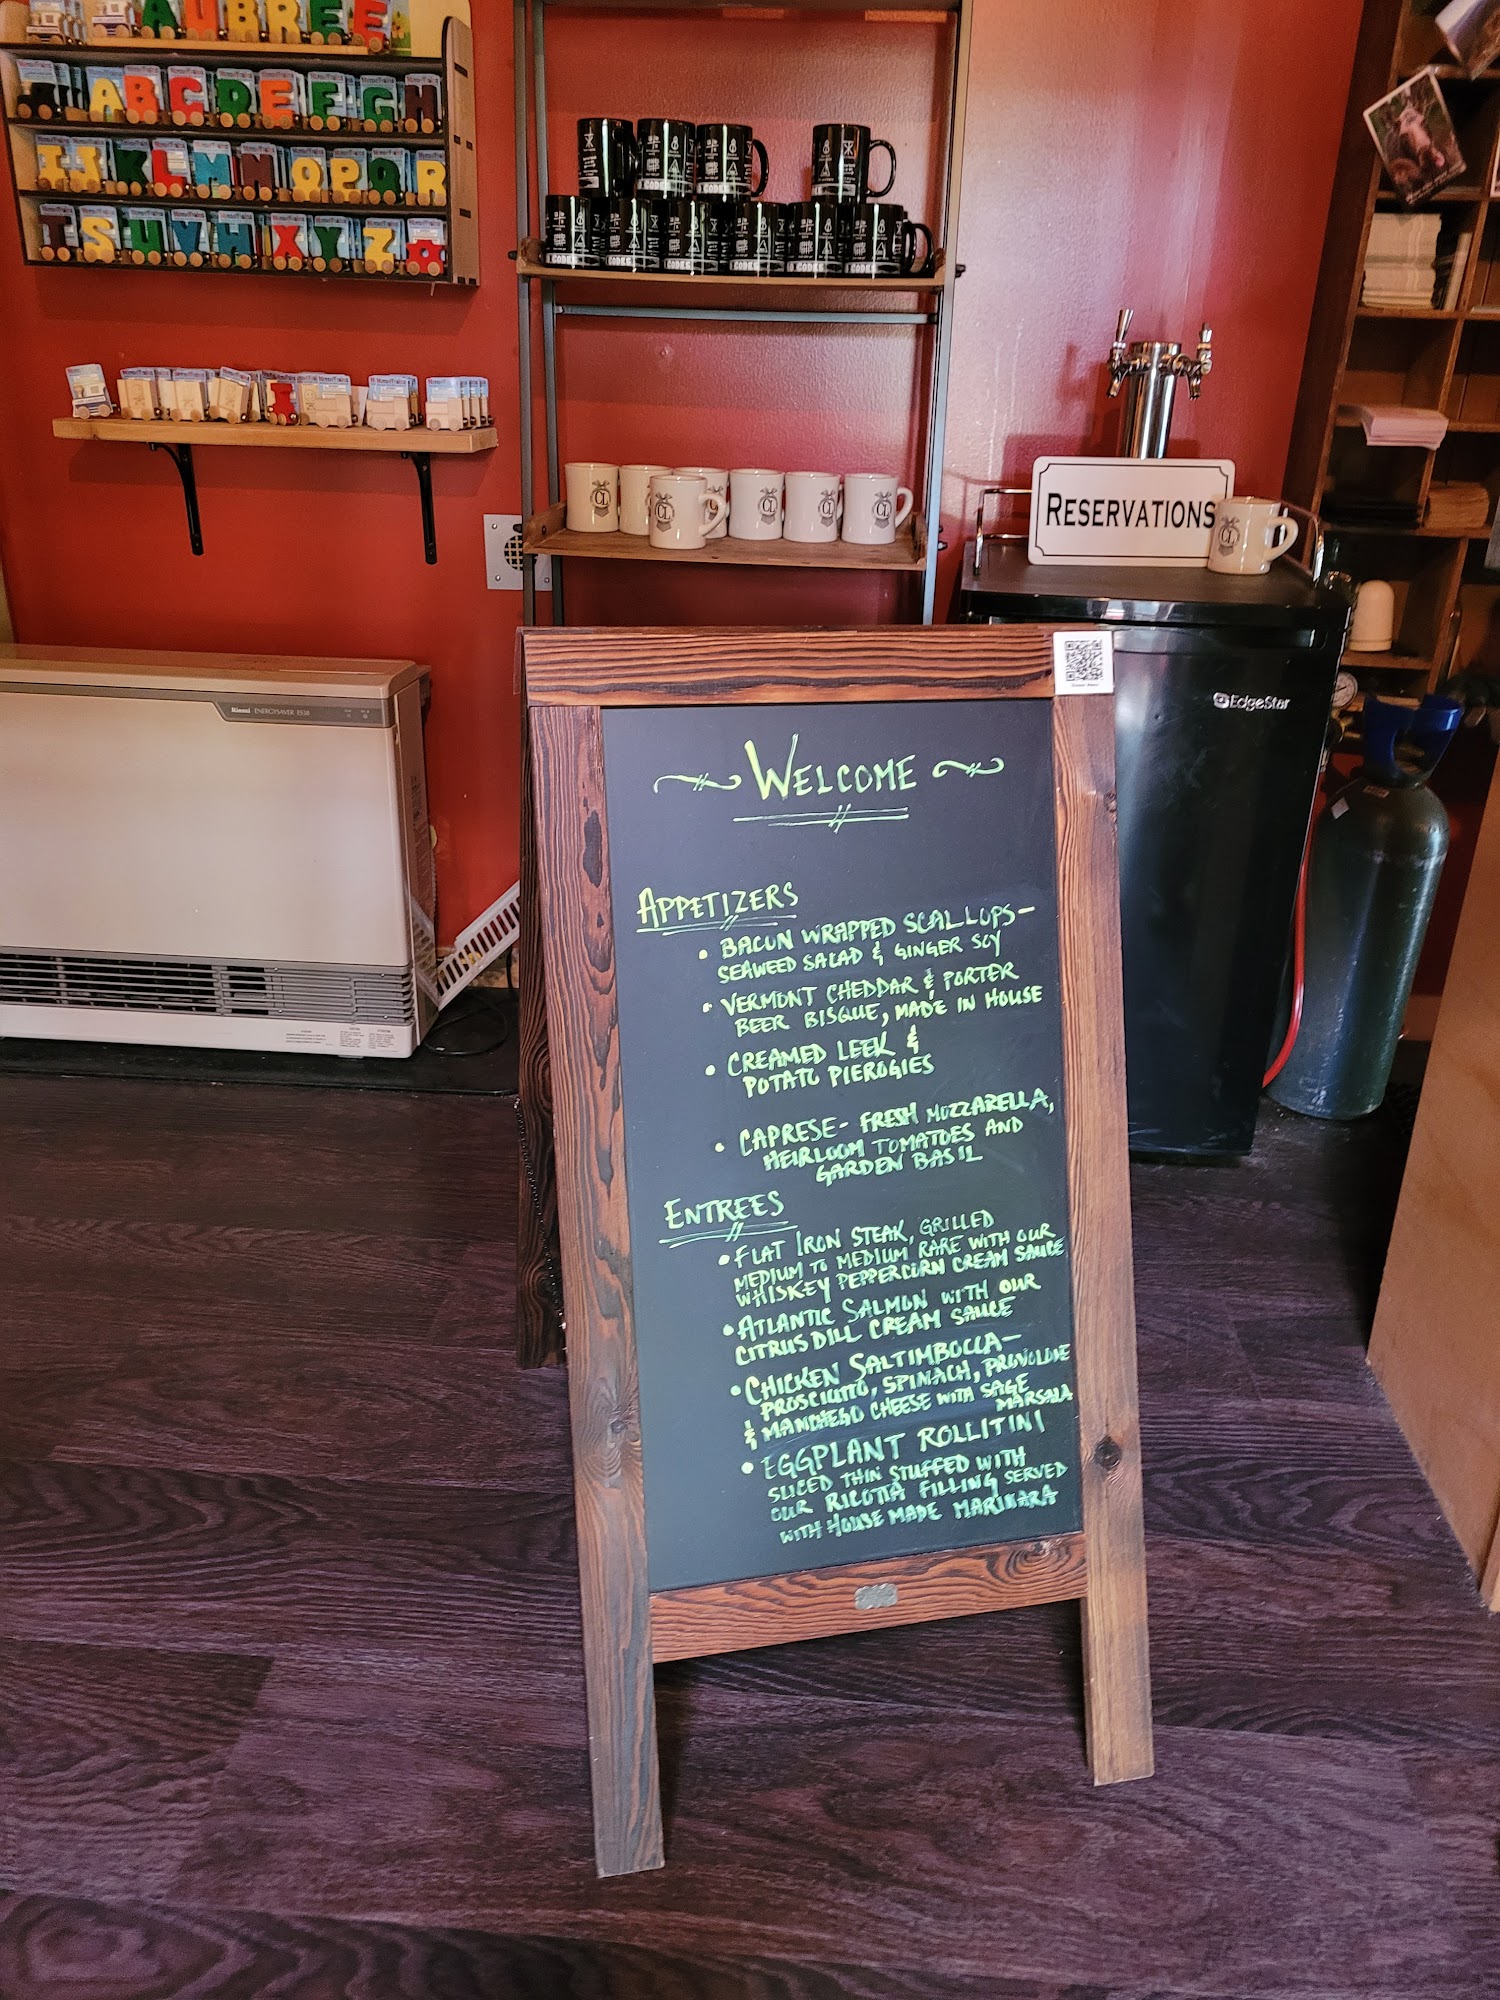 AUBREE
ABCDEFGH
IJKLMNOPQR
STUVWXYZ
CODES
CL
RESERVATIONS
EdgeStar
Rinnai ENERGYSAVER
WELCOME
APPETIZERS
• BACON WRAPPED SCALLOPS-
SEAWEED SALAD & GINGER SOY
• VERMONT CHEDDAR & PORTER
BEER BISQUE, MADE IN HOUSE
• CREAMED LEEK &
POTATO PIEROGIES
• CAPRESE- FRESH MOZZARELLA,
HEIRLOOM TOMATOES AND
GARDEN BASIL
ENTREES
• FLAT IRON STEAK, GRILLED
MEDIUM TO MEDIUM RARE WITH OUR
WHISKEY PEPPERCORN CREAM SAUCE
• ATLANTIC SALMON WITH OUR
CITRUS DILL CREAM SAUCE
• CHICKEN SALTIMBOCCA-
PROSCIUTTO, SPINACH, PROVOLONE
& MANCHEGO CHEESE WITH SAGE
MARSALA
• EGGPLANT ROLLITINI
SLICED THIN STUFFED WITH
OUR RICOTTA FILLING SERVED
WITH HOUSE MADE MARINARA